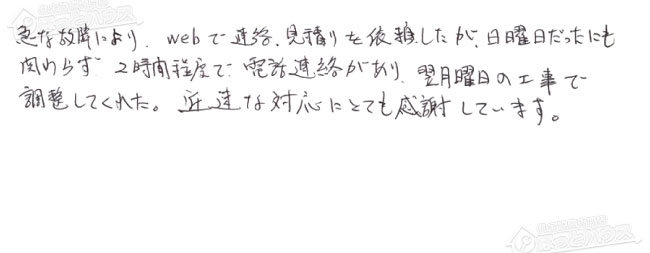 急な故障により、webで連絡、見積りを依頼したが、日曜日だったにも
関わらず 2時間程度で 電話連絡があり、翌月曜日の工事で
調整してくれた。迅速な対応にとても感謝しています。